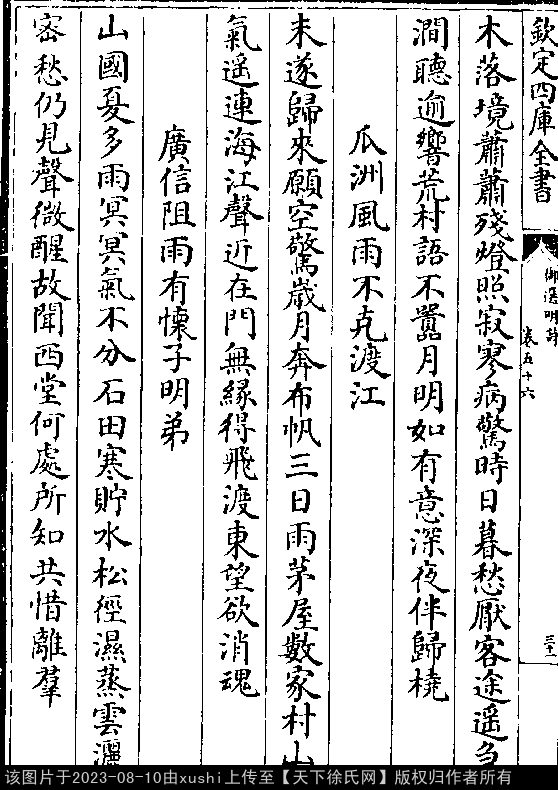 欽定四庫全書
御選明詩
卷五十六
三十一
木落境蕭蕭殘燈照寂寥病驚時日暮愁厭客途遥
澗聽逾響荒村語不囂月明如有意深夜伴歸橈
瓜洲風雨不克渡江
未遂歸來願空驚歲月奔布帆三日雨茅屋數家村山
氣遥連海江聲近在門無緣得飛渡東望欲消魂
廣信阻雨有懷子明弟
山國夏多雨冥冥氣不分石田寒貯水松徑濕蒸雲灑
密愁仍見聲微醒故聞西堂何處所知共惜離羣
该图片于2023-08-10由xushi上传至【天下徐氏网】版权归作者所有